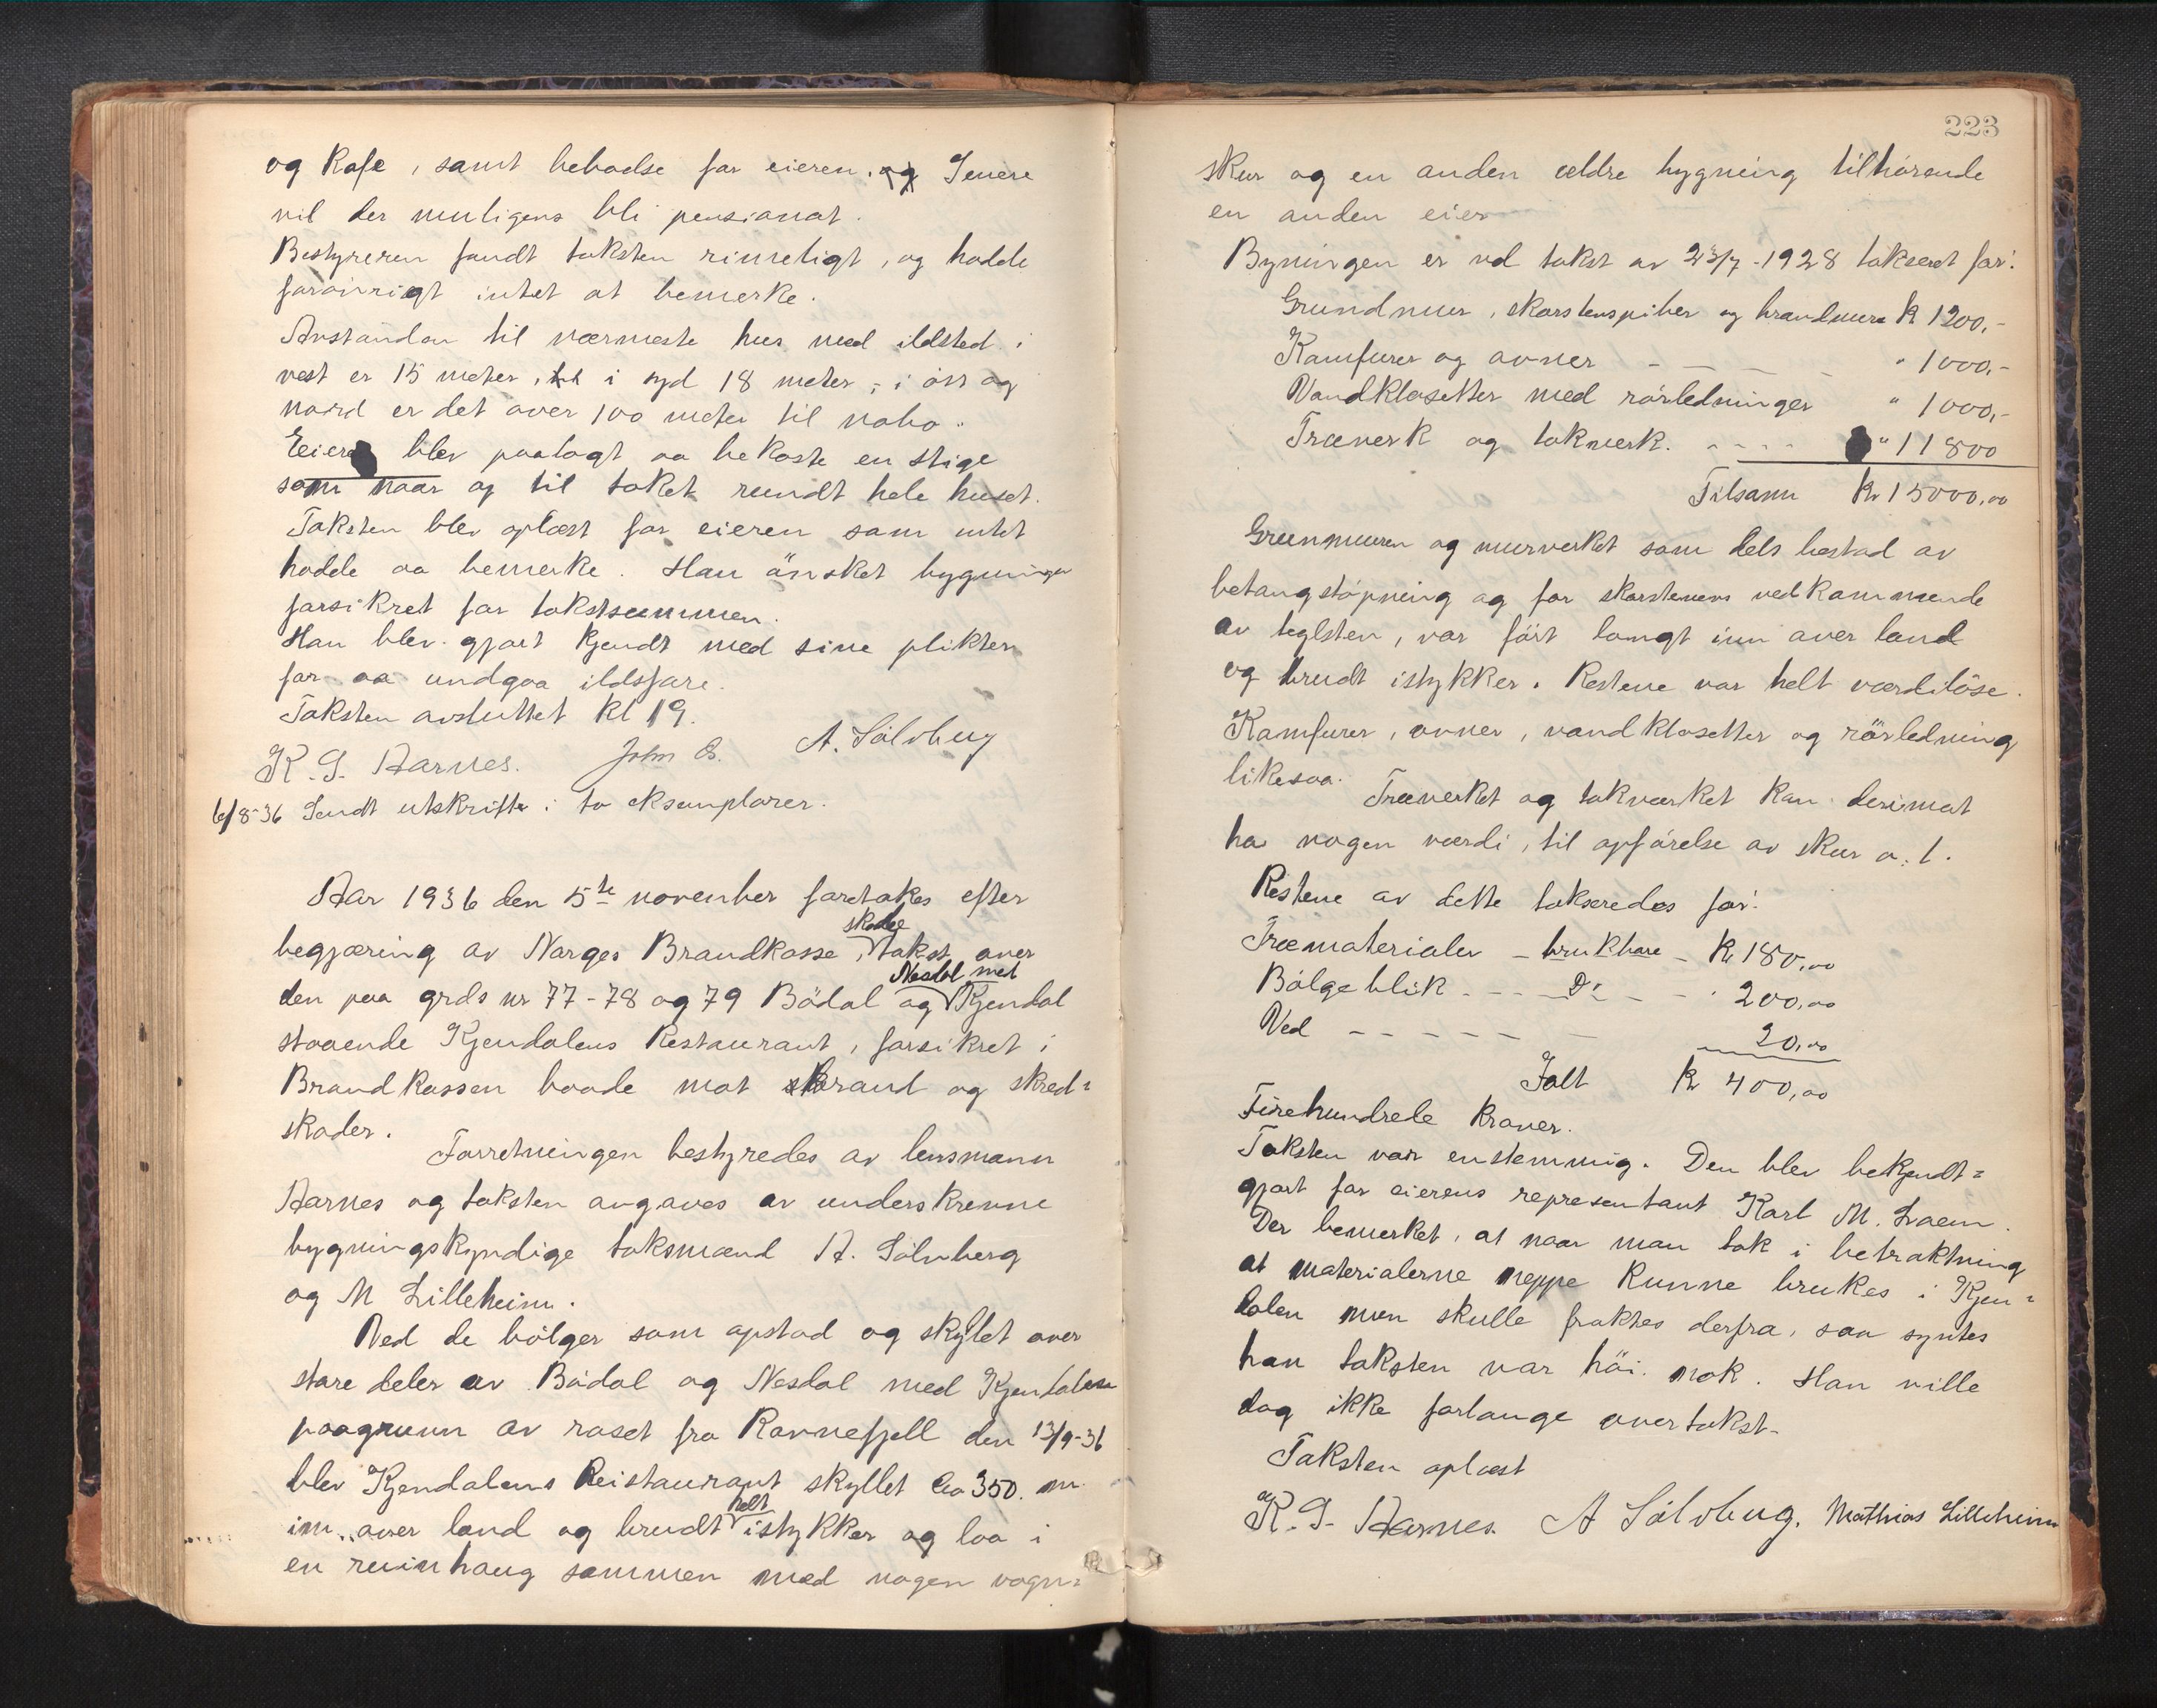 og Kafe, samt beboelse for eieren. og Senere
vil der muligens bli pensionat.
Bestyreren fandt taksten rimeligt, og hadde
forøvrigt intet at bemerke.
Avstanden til nærmeste hus med ildsted i
vest er 15 meter, i syd 18 meter, i øst og
nord er det over 100 meter til nabo.
Eieren blev paalagt aa bekoste en stige
som naar op til taket rundt hele huset.
Taksten blev oplæst for eieren som intet
hadde aa bemerke. Han ønsket bygningen
forsikret for takstsummen.
Han blev gjort kjendt med sine plikter
for aa undgaa ildsfare.
Taksten avsluttet kl 19.
K. S. Aarnes. John E. A. Sölvberg
6/8-36 Sendt utskrifter i to eksemplarer.
Aar 1936 den 5te november foretokes efter
begjæring av Norges Brandkasse, skade takst over
den paa grds nr 77-78 og 79 Bödal og Nesdal med Kjendal
staaende Kjendalens Restaurant, forsikret i
Brandkassen baade mot brand og skred=
skader.
Forretningen bestyredes av lensmann
Aarnes og taksten avgaves av underskrevne
bygningskyndige taksmænd A. Sölvberg
og M Lilleheim.
Ved de bölger som opstod og skyllet over
store deler av Bödal og Nesdal med Kjendalen
paagrunn av raset fra Ravnefjell den 13/9-36
blev Kjendalens Reistaurant skyllet ca 350 m
inn over land og brudt helt istykker og laa i
en ruinhaug sammen med nogen vogn=
223
skur og en anden ældre bygning tilhørende
en anden eier
Byningen er ved takst av 23/7-1928 taksert for:
Grundmur, skorstenspiber og brandmure kr 1200,-
Komfurer og ovner - - - - " 1000,-
Vandklosetter med rørledninger " 1000,-
Træverk og takverk. - - - - " 11800
Tilsamn kr 15000,00
Grunnmuren og murverket som dels bestod av
betongstøpning og for skorstenens vedkommende
av teglsten, var ført langt inn over land
og brudt istykker. Restene var helt værdiløse.
Komfurer, ovner, vandklosetter og rørledning
likesaa. Træverket og takværket kan derimot
ha nogen værdi, til opførelse av skur o. l.
Restene av dette takseredes for:
Træmaterialer - brukbare - kr 180,00
Bølgeblik - - - Do - - - 200,00
Ved - - - - - - - 20,00
Ialt kr 400,00
Firehundrede kroner.
Taksten var enstemmig. Den blev bekjendt=
gjort for eierens representant Karl M. Loen.
Der bemerket, at naar man tok i betraktning
at materialerne neppe kunne brukes i Kjen=
dalen men skulle fraktes derfra, saa syntes
han taksten var høi nok. Han ville
dog ikke forlange overtakst.
Taksten oplæst
K. S. Aarnes. A Sölvberg. Mathias Lilleheim